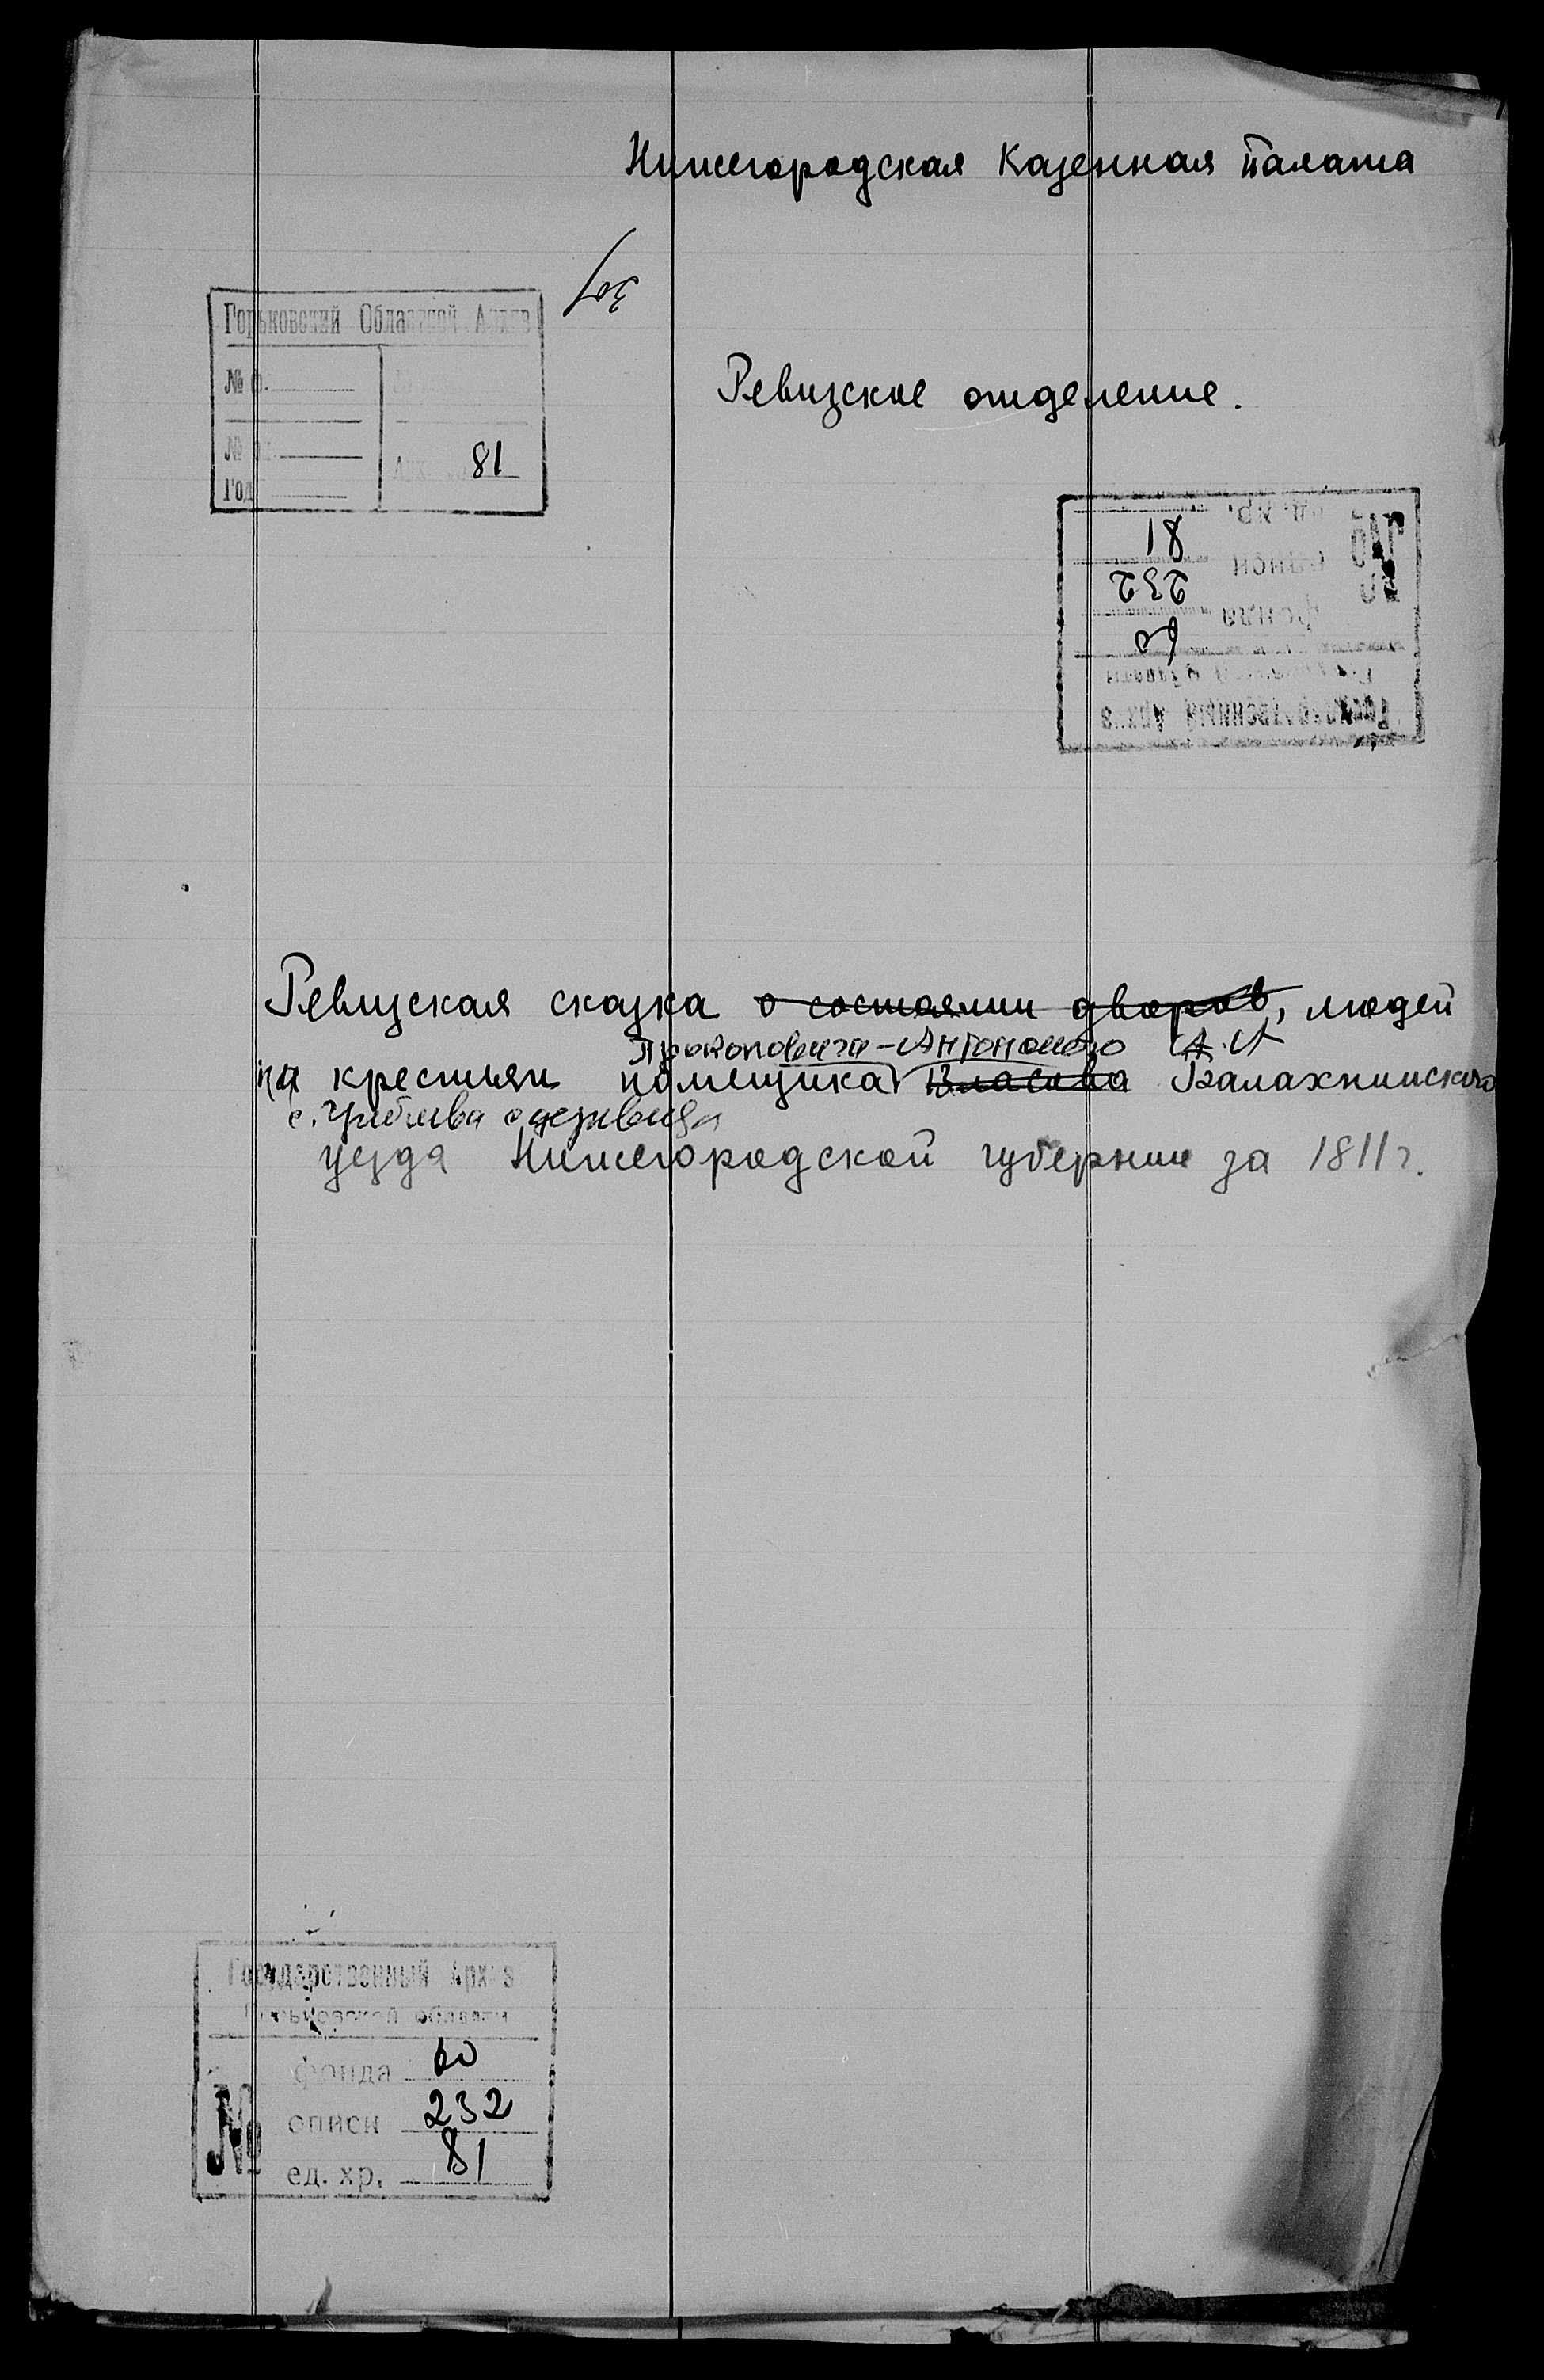 Нижегородская Казенная палата
Горьковский Областной Архив
№ ф.
№
Год
81
Ревизское отделение.
№
ед. хр. 81
описи 232
фонда 60
Горьковской области
Государственный Архив
Ревизская сказка о состоянии дворов, людей
Прокоповича-Антонского А. А
на крестьян помещика Власова Балахнинского
с деревня
уезда Нижегородской губернии за 1811 г.
Государственный Архив
Горьковской области
№
фонда 60
описи 232
ед. хр. 81